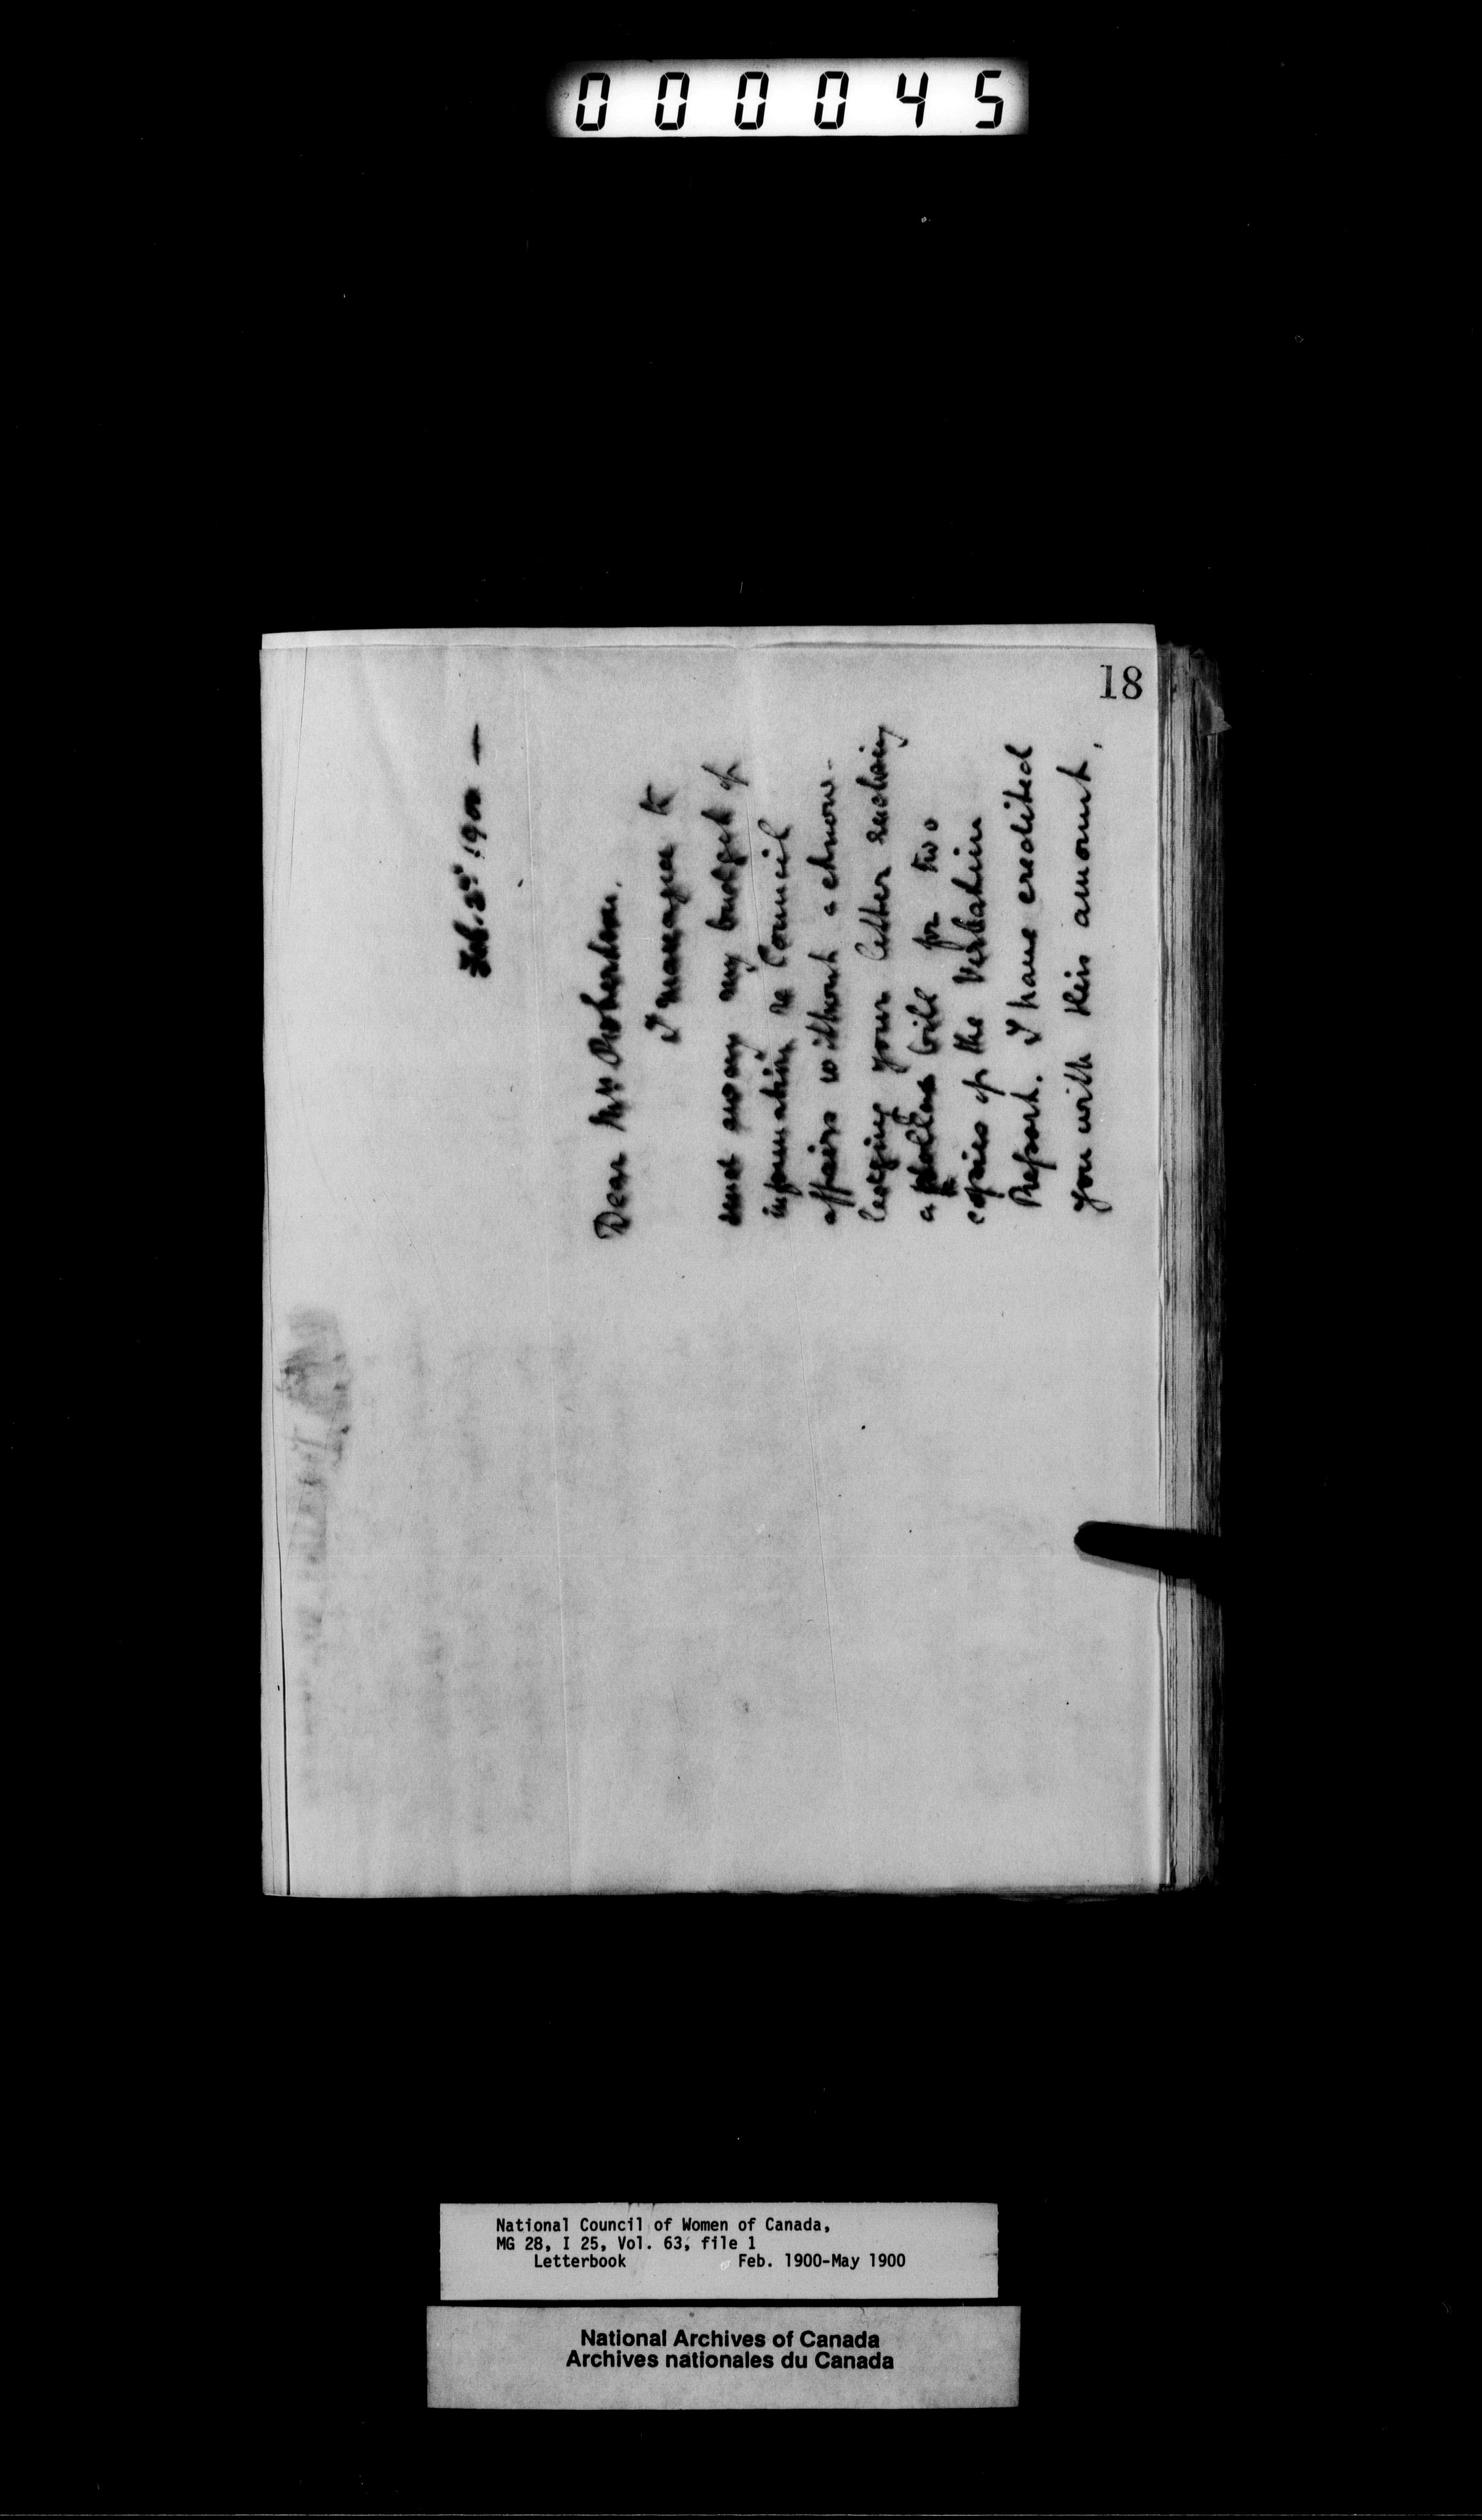 000045
18
Feb. 3rd 1900 —
Dear Mrs Robertson,
I managed to
send away my budget of
information re Council
affairs without acknow-
ledging your letter enclosing
a dollar bill for two
copies of the Verbatim
Report. I have credited
you with this amount,
National Council of Women of Canada,
MG 28, I 25, Vol. 63, file 1
Letterbook Feb. 1900-May 1900
National Archives of Canada
Archives nationales du Canada